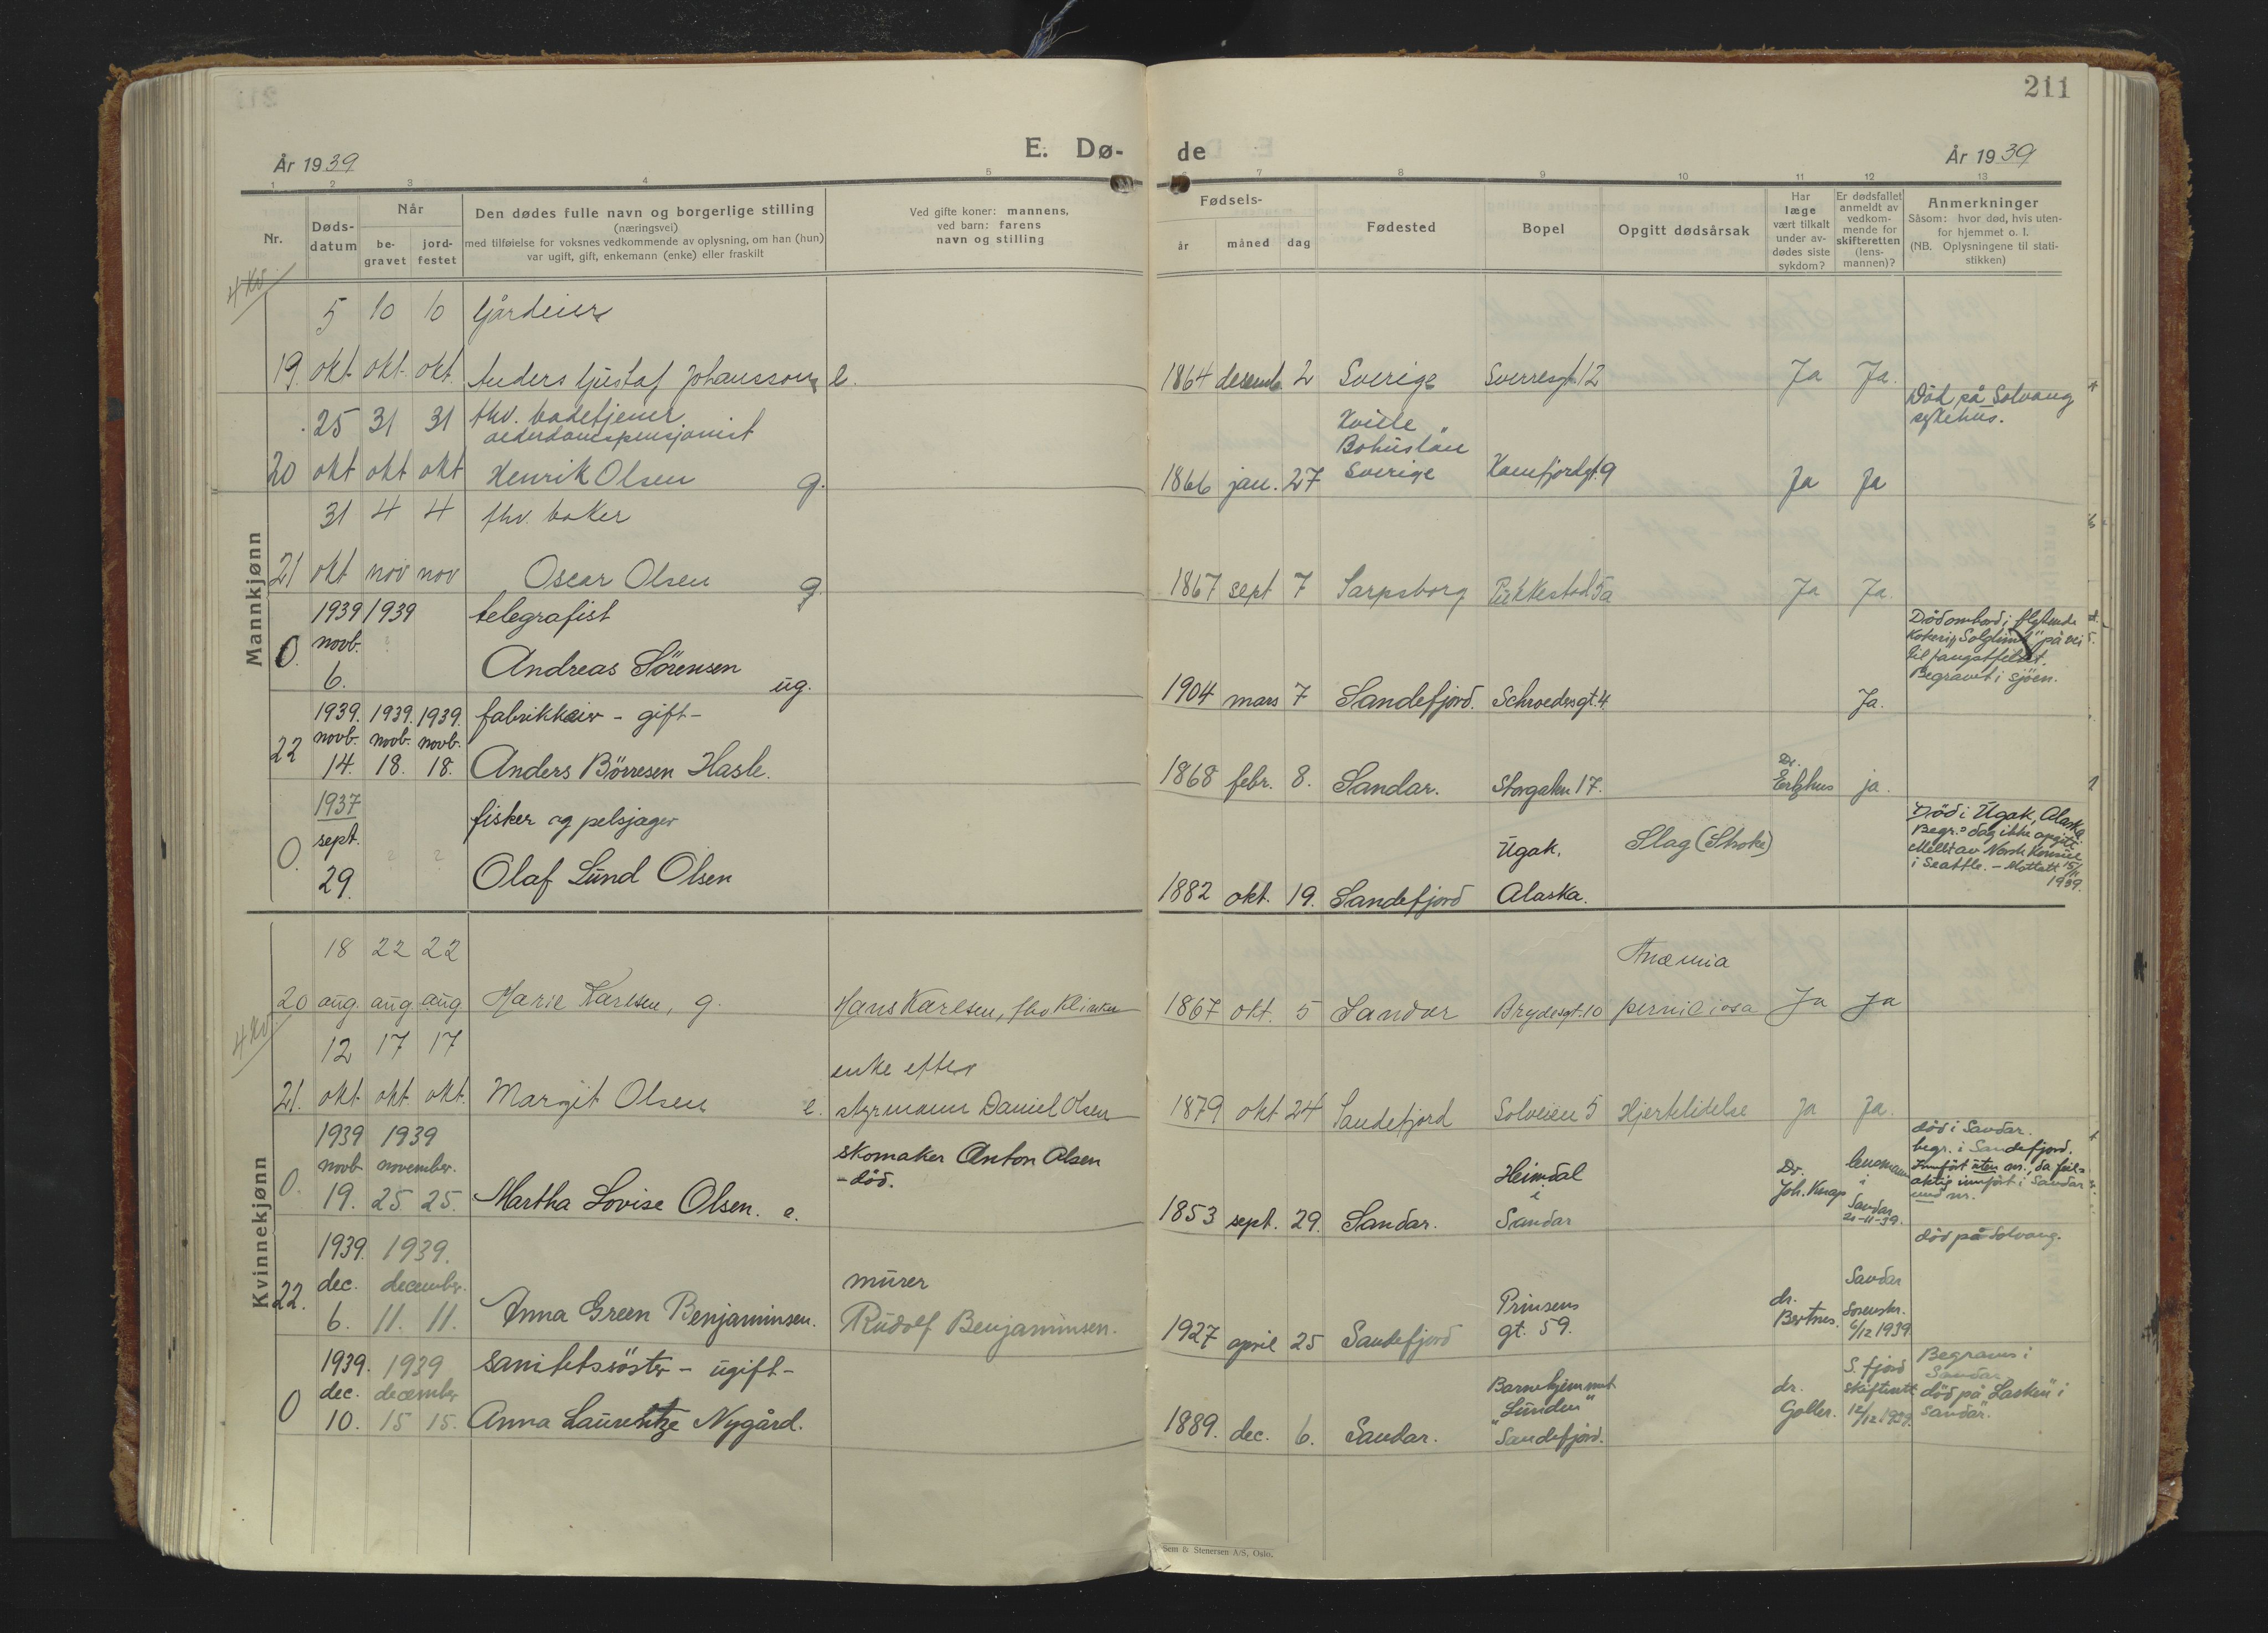 211
E. Dø- de
År 1939
År 1939
1 2 3 4 5 6 7 8 9 10 11 12 13
Nr.
Døds-
datum
Når
be-
gravet
jord-
festet
Den dødes fulle navn og borgerlige stilling
(næringsvei)
med tilføielse for voksnes vedkommende av oplysning, om han (hun)
var ugift, gift, enkemann (enke) eller fraskilt
Ved gifte koner: mannens,
ved barn: farens
navn og stilling
Fødsels-
år måned dag
Fødested
Bopel
Opgitt dødsårsak
Har
læge
vært tilkalt
under av-
dødes siste
sykdom?
Er dødsfallet
anmeldt av
vedkom-
mende for
skifteretten
(lens-
mannen)?
Anmerkninger
Såsom: hvor død, hvis uten-
for hjemmet o. l.
(NB. Oplysningene til stati-
stikken)
Mannkjønn
4 kv.
5 10 10 Gårdeier
19. okt. okt. okt. Anders Gustaf Johansson e. 1864 desemb. 2 Sverige Sverresgt. 12 Ja Ja.
25 31 31 fhv. badetjener
alderdomspensjonist
Kville
Bohuslän
Død på Solvang
sykehus.
20 okt okt okt Henrik Olsen g. 1866 jan. 27 Sverige Kamfjordgt. 9 Ja Ja
31 4 4 fhv. baker
21 okt nov nov Oscar Olsen g. 1867 sept 7 Sarpsborg Pukkestad 5a Ja Ja.
1939 1939 telegrafist
0. novb. ?
6. Andreas Sörensen ug. 1904 mars 7 Sandefjord. Schroedersgt. 4. Ja.
Död ombord i flytende
kokeri "Solglimt" på vei
til fangstfeltet.
Begravet i sjöen.
1939. 1939. 1939. fabrikkeier - gift -
22 novb. novb. novb.
14. 18. 18. Anders Börresen Hasle. 1868 febr. 8. Sandar. Storgaten 17. Dr.
ja.
1937 fisker og pelsjager
sept.
0. ? ?
29. Olaf Lund Olsen 1882 okt. 19. Sandefjord Ugak,
Alaska. Slag (Stroke)
Död i Ugak, Alaska
Begr.s dag ikke opgitt
Meldt av Norsk Konsul
i Seattle. - Mottatt 15/11
1939.
Kvinnekjønn
4 kv.
18 22 22
20 aug. aug. aug Marie Karlsen, g. Hans Karlsen, fhv 1867 okt. 5 Sandar Brydesgt. 10 Anæmia
perniciosa Ja Ja
12 17 17 enke efter
21. okt. okt. okt. Margit Olsen e. styrmann Daniel Olsen 1879 okt 24 Sandefjord Solveien 5 Hjertelidelse Ja Ja.
1939 1939 skomaker Anton Olsen
- död.
novb. november.
0. 19. 25. 25. Martha Lovise Olsen. e. 1853 sept. 29. Sandar. Heimdal
i
Sandar Dr.
Joh. Knap lensmann
i
Sandar
21-11-39.
död i Sandar.
begr. i Sandefjord.
Innfört uten nr., da feil-
aktig innfört i Sandar
med nr.
1939. 1939. död på Solvang.
22. dec. december. murer
6. 11. 11. Anna Green Benjaminsen. Rudolf Benjaminsen. 1927 april 25 Sandefjord Prinsens
gt. 59. dr.
Bertnes. Sandar
Sorenskr.
6/12 1939
1939. 1939 sanitetssöster - ugift -
0 dec. december
10. 15 15. Anna Laurentze Nygård. 1889. dec. 6. Sandar. Barnehjemmet
"Lunden"
Sandefjord. dr.
Goller. S.fjord
skifterett
12/12 1939.
Begraves i
Sandar
död på "Lasken" i
Sandar.
Sem & Stenersen A/S, Oslo.